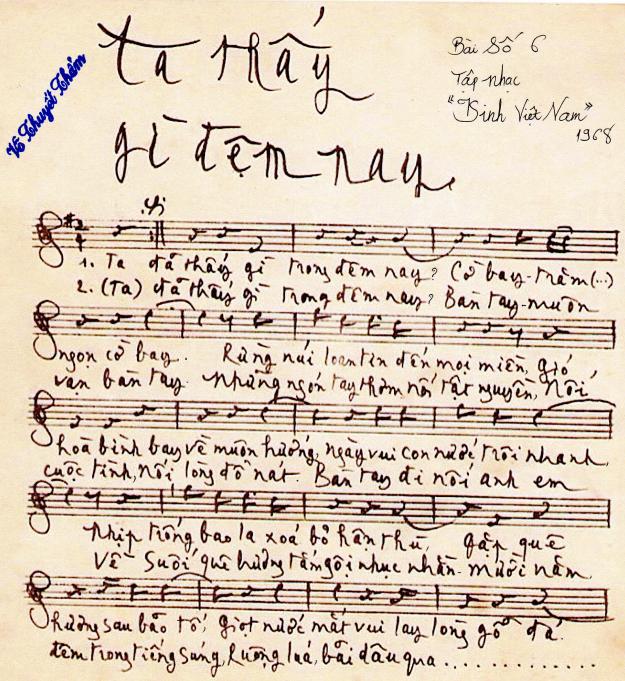 Ta thấy
gì đêm nay
Võ Thuyết Thẩm
Bài Số 6
Tập nhạc
"Kinh Việt Nam"
1968
1. Ta đã thấy gì trong đêm nay? Cờ bay trăm (...)
2. (Ta) đã thấy gì trong đêm nay? Bàn tay muôn
ngọn cờ bay. Rừng núi loan tin đến mọi miền, gió
vạn bàn tay. Những ngón tay thơm nối tật nguyền, nối
hoà bình bay về muôn hướng, ngày vui con nước trôi nhanh,
cuộc tình, nối lòng đổ nát. Bàn tay đi nối anh em
nhịp trống bao la xoá bỏ hận thù, gặp quê
Về suối quê hương tắm gội nhục nhằn. mười năm
hương sau bão tố, giọt nước mắt vui lay lòng gỗ đá.
đêm trong tiếng súng, Ruộng lúa, bãi dâu qua . . . . . . . . . . . . .